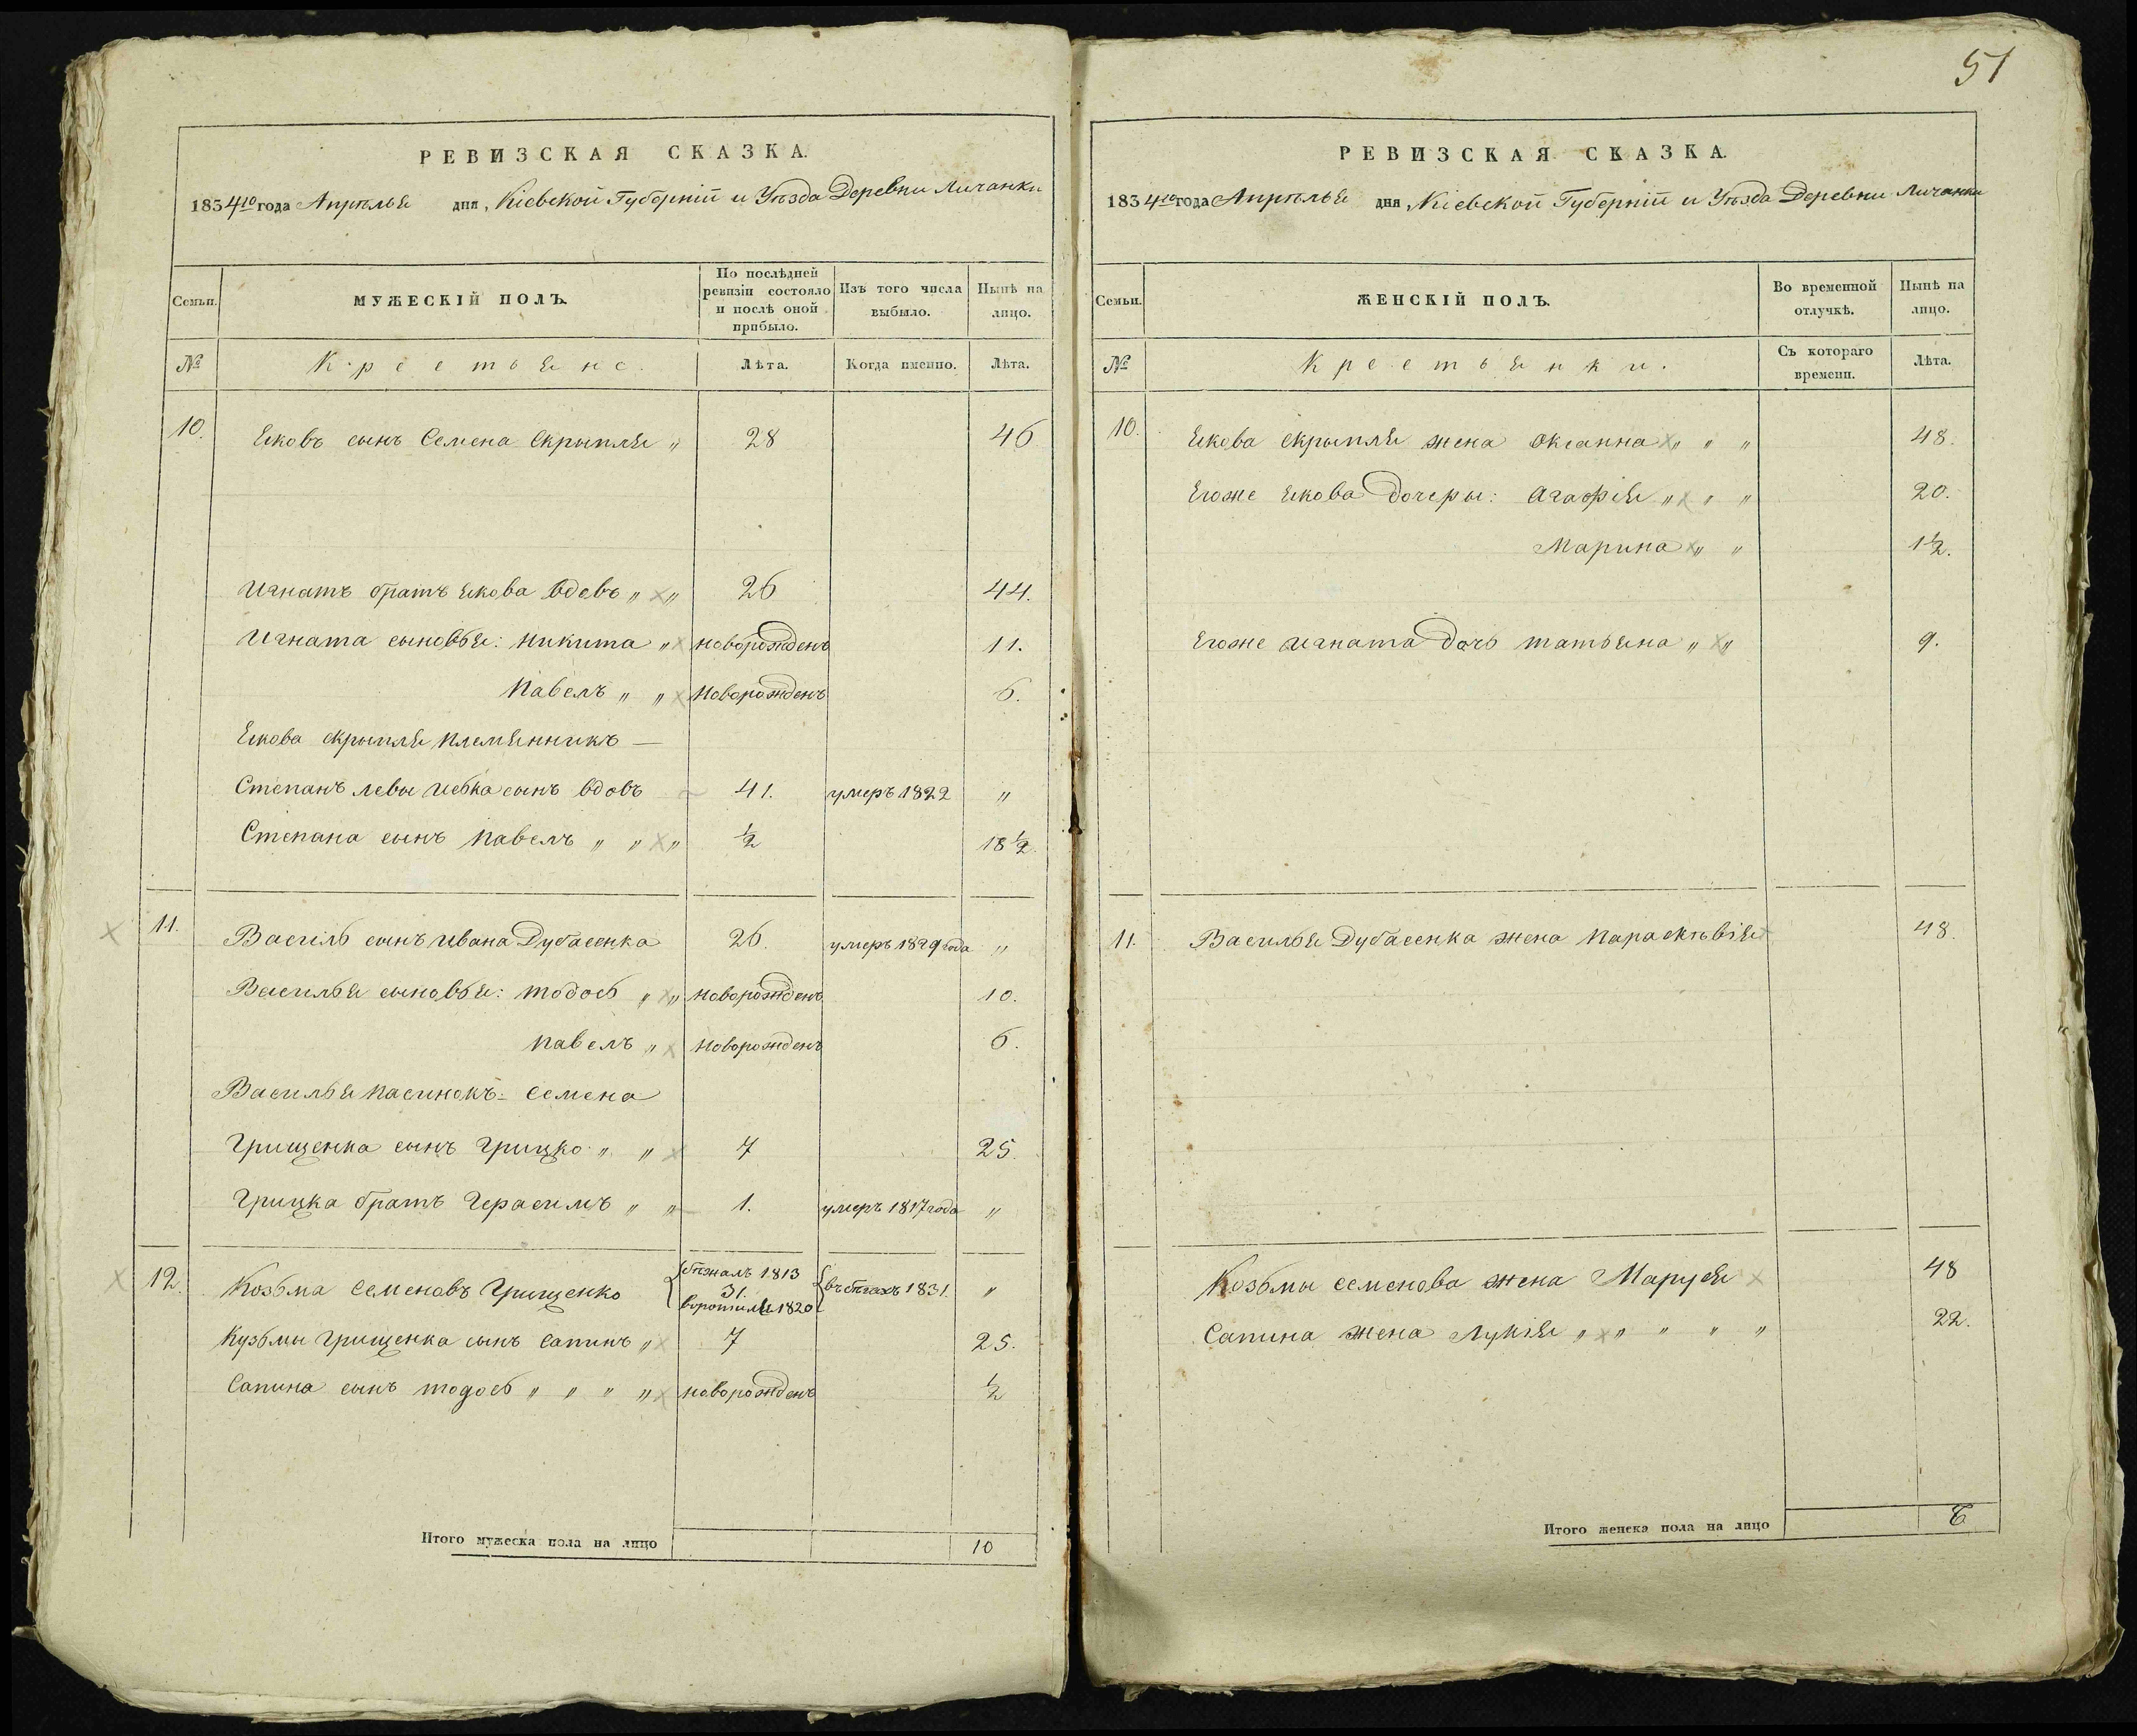 РЕВИЗСКАЯ СКАЗКА.
1834го года Апрѣля дня, Кіевской Губерніи и Уѣзда Деревни Личанки
Семьи. МУЖЕСКІЙ ПОЛЪ. По послѣдней ревизіи состояло и послѣ оной прибыло. Изъ того числа выбыло. Нынѣ на лицо.
№ Крестьяне. Лѣта. Когда именно. Лѣта.
10. Яковъ сынъ Семена Скрыпля „ 28 46
Игнатъ братъ Якова вдовъ „ „ 26 44.
Игната сыновья: Никита „ новорожденъ 11.
Павелъ „ „ новорожденъ 6.
Якова Скрыпля племянникъ —
Степанъ Левы сынъ вдовъ 41. умеръ 1822 „
Степана сынъ Павелъ „ „ „ ½ 18 ½.
11. Василь сынъ Ивана Дубасенка 26. умеръ 1829 года „
Василья сыновья: Тодосъ „ „ новорожденъ 10.
Павелъ „ новорожденъ 6.
Василья пасинокъ: Семена
Грищенка сынъ Грицко „ „ 7 25.
Грицка братъ Герасимъ „ „ 1. умеръ 1817 года „
12. Козьма Семеновъ Грищенко бѣжалъ 1813 31. воротился 1820 въ бѣгахъ 1831. „
Кузьмы Грищенка сынъ Сапинъ „ 7 25.
Сапина сынъ Тодосъ „ „ „ „ новорожденъ ½
Итого мужеска пола на лицо 10
51
РЕВИЗСКАЯ СКАЗКА.
1834го года Апрѣля дня, Кіевской Губерніи и Уѣзда Деревни Личанки
Семьи. ЖЕНСКІЙ ПОЛЪ. Во временной отлучкѣ. Нынѣ на лицо.
№ Крестьянки. Съ котораго времени. Лѣта.
10. Якова Скрыпля жена Оксанна „ „ „ 48.
Егоже Якова дочеры: Агафія „ „ „ 20.
Марина „ „ 1½.
Егоже Игната дочь Татьяна „ „ 9.
11. Василья Дубасенка жена Параскѣвія 48.
Козьмы Семенова жена Маруся 48
Сапина жена Лукія „ „ „ „ „ 22.
Итого женска пола на лицо